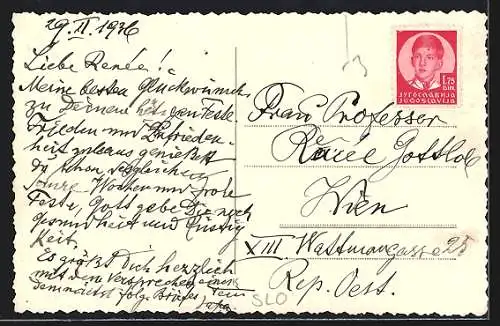 29. II. 1936
Liebe Renée!
Meine besten Glückwünsche
zu Deinem heutigen Feste
Frieden und Zufrieden-
heit
du schon
Wochen und frohe
Feste, Gott gebe Dir noch
Gesundheit und Lustig
Keit.
Es grüßt Dich herzlich
mit dem Versprechen eines
demnächst folg. Briefes Dein
ЈУГОСЛАВИЈА
JUGOSLAVIJA
1.75
DIN.
Frau Professor
Renée Gottlob
Wien
XIII Wattmanngasse 25
Rep. Oest.
SLO